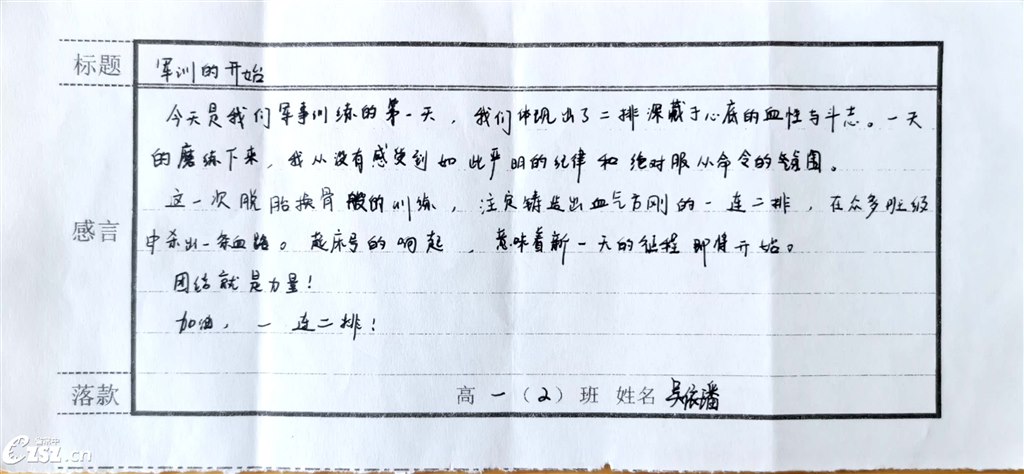 标题
军训的开始
感言
今天是我们军事训练的第一天，我们体现出了二排深藏于心底的血性与斗志。一天
的磨练下来，我从没有感受到如此严明的纪律和绝对服从命令的氛围。
这一次脱胎换骨般的训练，注定铸造出血气方刚的一连二排，在众多班级
中杀出一条血路。起床号的响起，意味着新一天的征程即将开始。
团结就是力量！
加油，一连二排！
落款
高一（2）班 姓名 吴依璠
151.cn